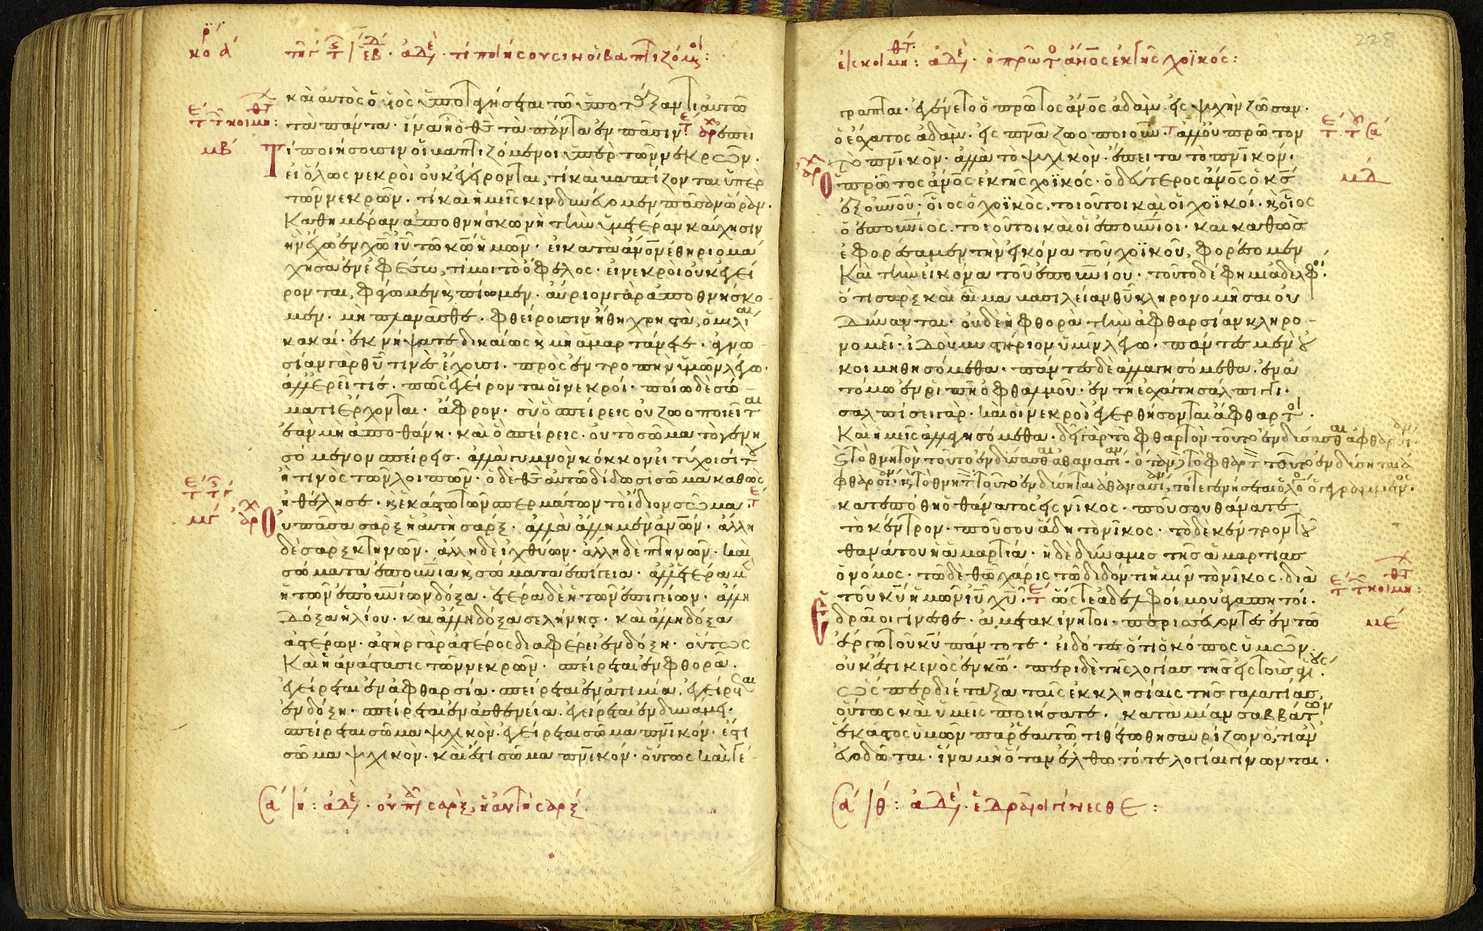 καὶ αὐτὸς ὁ υἱὸς ὑποταγήσεται τῶ ὑποτάξαντι αὐτῶ
τὰ πάντα· ἵνα ἦ ὁ θ̅ς̅ τὰ πάντα ἐν πᾶσιν ἐπεὶ
τί ποιήσουσιν οἱ βαπτιζόμενοι ὑπὲρ τῶν νεκρῶν·
εἰ ὅλως νεκροὶ οὐκ ἐγείρονται, τί καὶ βαπτίζονται ὑπὲρ
τῶν νεκρῶν· τί καὶ ἡμεῖς κινδυνεύομεν πᾶσαν ὥραν·
καθημέραν ἀποθνήσκω νὴ τὴν ὑμετέραν καύχησιν
ἣν ἔχω ἐν χ̅ω̅ ι̅υ̅ τῶ κ̅ω̅ ἡμῶν· εἰ κατὰ ἄν̅ο̅ν̅ ἐθηριομά
χησα ἐν ἐφέσω, τί μοι τὸ ὄφελος· εἰ νεκροὶ οὐκ ἐγεί
ρονται, φάγωμεν κ πίωμεν· αὔριον γὰρ ἀποθνήσκο
μεν· μὴ πλανᾶσθε· φθείρουσιν ἤθη χρηστὰ, ὁμιλίαι
κακαί· ἐκνήψατε δικαίως κ μὴ ἁμαρτάνετε· ἀγνω
σίαν γὰρ θ̅υ̅ τινὲς ἔχουσι· πρὸς ἐντροπὴν ὑμῶν λέγω·
ἀλλ' ἐρεῖ τίς· πῶς ἐγείρονται οἱ νεκροί· ποίω δὲ σώ
ματι ἔρχονται· ἄφρον· σὺ ὃ σπείρεις οὐ ζωοποιεῖται
ἐὰν μὴ ἀποθάνη· καὶ ὃ σπείρεις· οὐ τὸ σῶμα τὸ γενη
σόμενον σπείρεις· ἀλλὰ γυμνὸν κόκκον εἰ τύχοι σίτου
ἤ τινος τῶν λοιπῶν· ὁ δὲ θ̅ς̅ αὐτῶ δίδωσι σῶμα καθὼς
ἠθέλησε· κ ἑκάστω τῶν σπερμάτων τὸ ἴδιον σῶμα·
οὐ πᾶσα σαρξ ἡ αὐτὴ σαρξ· ἀλλὰ ἄλλη μὲν ἀν̅ω̅ν̅· ἄλλη
δὲ σαρξ κτηνῶν· ἄλλη δὲ ἰχθύων· ἄλλη δὲ πτηνῶν· καὶ
σώματα ἐπουνια κ σώματα ἐπίγεια· ἀλλ' ἑτέρα μ
ἡ τῶν ἐπουνίων δόξα· ἑτέρα δὲ ἡ τῶν ἐπιγείων· ἄλλη
δόξα ἡλίου· καὶ ἄλλη δόξα σελήνης· καὶ ἄλλη δόξα
ἀστέρων· ἀστὴρ γὰρ ἀστέρος διαφέρει ἐν δόξη· οὕτως
καὶ ἡ ἀνάστασις τῶν νεκρῶν· σπείρεται ἐν φθορᾶ·
ἐγείρεται ἐν ἀφθαρσία· σπείρεται ἐν ἀτιμία, ἐγείρεται
ἐν δόξη· σπείρεται ἐν ἀσθενεία· ἐγείρεται ἐν δυνάμει·
σπείρεται σῶμα ψυχικόν· ἐγείρεται σῶμα πν̅ικόν· ἔστι
σῶμα ψυχικὸν· καὶ ἔστι σῶμα πν̅ικόν· οὕτως καὶ γέ
γραπται· ἐγένετο ὁ πρῶτος ἄν̅ο̅ς̅ ἀδὰμ· εἰς ψυχὴν ζῶσαν·
ὁ ἔσχατος ἀδαμ· εἰς πν̅α̅ ζωοποιοῦν· ἀλλ' οὐ πρῶτον
τὸ πν̅ικὸν· ἀλλὰ τὸ ψυχικὸν· ἔπειτα τὸ πν̅ικόν·
ὁ πρῶτος ἄν̅ο̅ς̅ ἐκ γῆς χοϊκός· ὁ δεύτερος ἄν̅ο̅ς̅ ὁ κ̅ς̅
ἐξ οὐν̅ο̅υ̅· οἷος ὁ χοϊκὸς, τοιοῦτοι καὶ οἱ χοϊκοί· κ οἷος
ὁ ἐπουνιος· τοιοῦτοι καὶ οἱ ἐπουνιοι· καὶ καθὼς
ἐφορέσαμεν τὴν εἰκόνα τοῦ χοϊκοῦ, φορέσομεν
καὶ τὴν εἰκόνα τοῦ ἐπουνίου· τοῦτο δέ φημι ἀδελφοί·
ὅτι σαρξ καὶ αἷμα βασιλείαν θ̅υ̅ κληρονομῆσαι οὐ
δύνανται· οὐδὲ ἡ φθορὰ τὴν ἀφθαρσίαν κληρο
νομεῖ· ἰδοὺ μυστήριον ὑμῖν λέγω· πάντες μὲν οὐ
κοιμηθησόμεθα· πάντες δὲ ἀλλαγησόμεθα· ἐν ἀ
τόμω ἐν ῥιπῆ ὀφθαλμοῦ· ἐν τῆ ἐσχάτη σάλπιγγι·
σαλπίσει γάρ· καὶ οἱ νεκροὶ ἐγερθήσονται ἄφθαρτοι·
καὶ ἡμεῖς ἀλλαγησόμεθα· δεῖ γὰρ τὸ φθαρτὸν τοῦτο ἐνδύσασθαι ἀφθαρσίαν
κ τὸ θνητὸν τοῦτο ἐνδύσασθαι ἀθανασίαν· ὅταν δὲ τὸ φθαρτὸν τοῦτο ἐνδύσηται ἀ
φθαρσίαν· κ τὸ θνητὸν τοῦτο ἐνδύσηται ἀθανασίαν, τότε γενήσεται ὁ λόγος ὁ γεγραμμένος·
κατεπόθη ὁ θάνατος εἰς νῖκος· ποῦ σου θάνατε
τὸ κέντρον· ποῦ σου ἅδη τὸ νῖκος· τὸ δὲ κέντρον τοῦ
θανάτου ἡ ἁμαρτία· ἡ δὲ δύναμις τῆς ἁμαρτίας
ὁ νόμος· τῶ δὲ θ̅ω̅ χάρις τῶ διδόντι ἡμῖν τὸ νῖκος· διὰ
τοῦ κ̅υ̅ ἡμῶν ι̅υ̅ χ̅υ̅· ὥστε ἀδελφοί μου ἀγαπητοί·
ἑδραῖοι γίνεσθε· ἀμετακίνητοι· περισσεύοντες ἐν τῶ
ἔργω τοῦ κ̅υ̅ πάντοτε· εἰδότες ὅτι ὁ κόπος ὑμῶν
οὐκ ἔστι κενὸς ἐν κ̅ω̅· περὶ δὲ τῆς λογίας τῆς εἰς τοὺς ἁγίους·
ὥσπερ διέταξα ταῖς ἐκκλησίαις τῆς γαλατίας,
οὕτως καὶ ὑμεῖς ποιήσατε· κατὰ μίαν σαββάτων
ἕκαστος ὑμῶν παρ' ἑαυτῶ τιθέτω θησαυρίζων ὅ,τι ἂν
εὐοδῶται· ἵνα μὴ ὅταν ἔλθω τότε λογίαι γίνωνται·